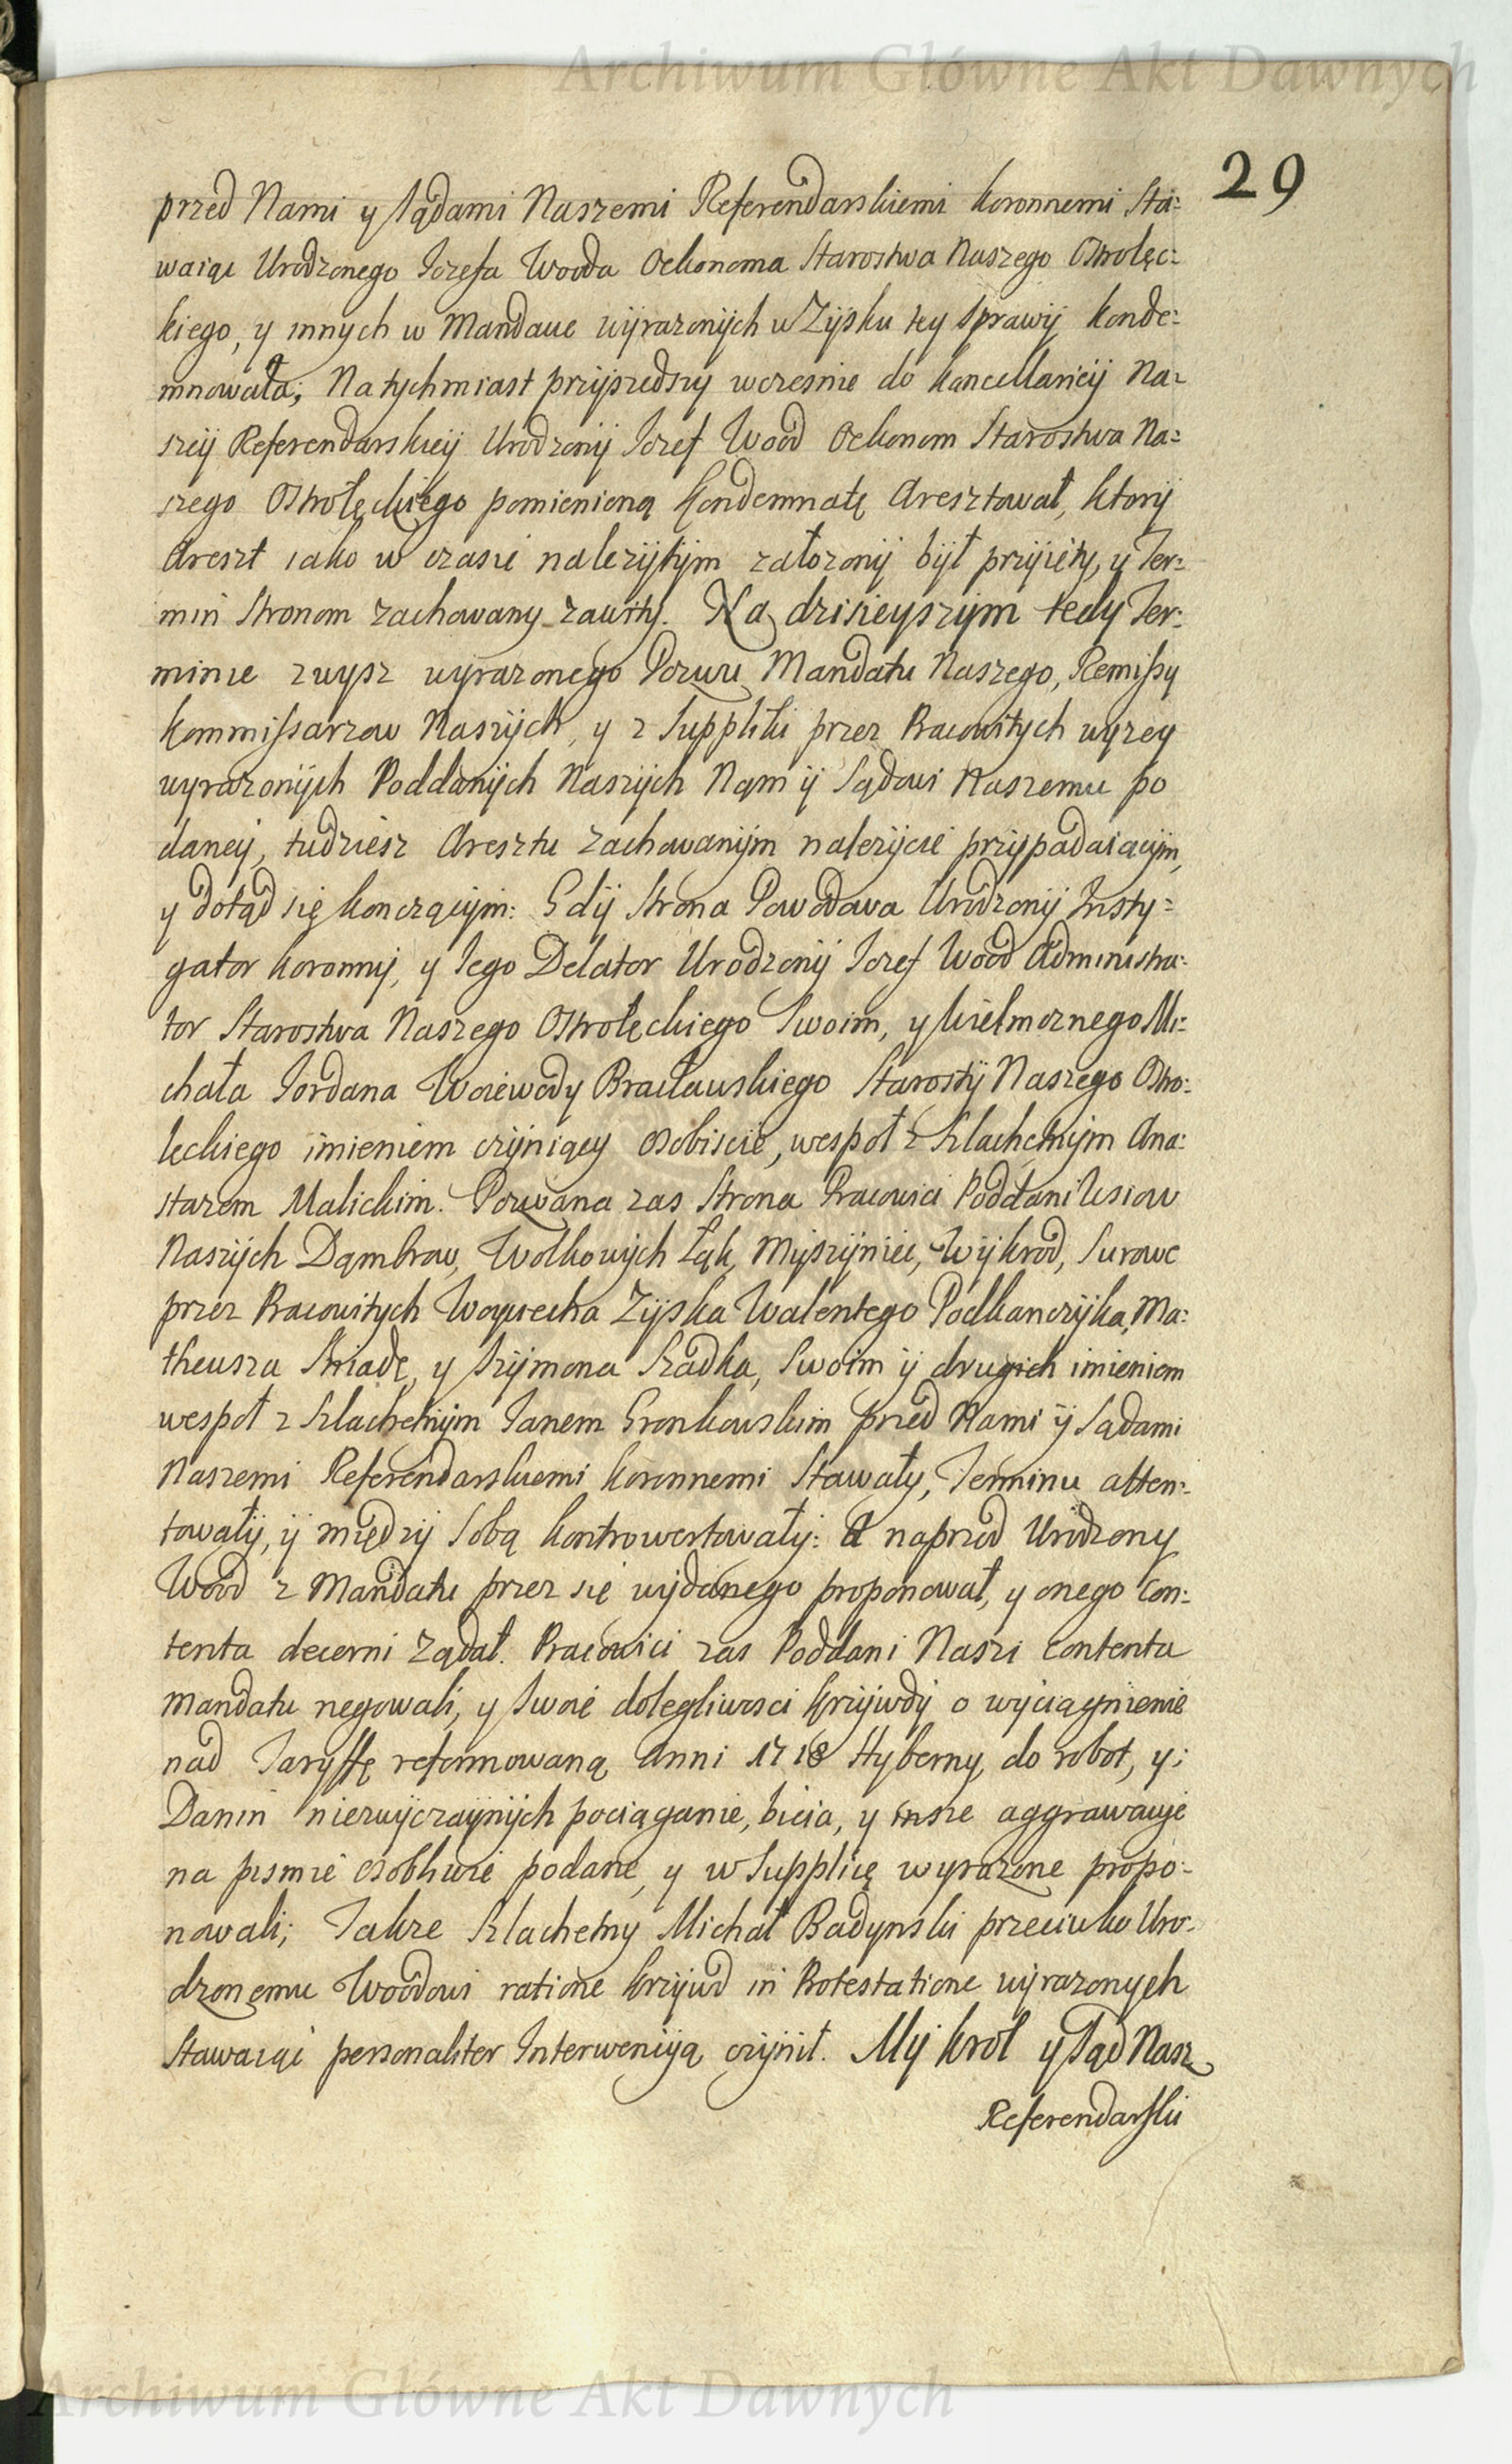 Archiwum Główne Akt Dawnych
29
przed Nami y Sądami Naszemi Referendarskiemi Koronnemi Sta:
waiąc Urodzonego Jozefa Wooda Oekonoma Starostwa Naszego Ostrołęc:
kiego, y innych w Mandacie wÿrazonÿch w Zÿsku teÿ sprawÿ konde:
mnowała; Natychmiast przÿszedszy wczesnie do kancellarÿi Na:
szeÿ Referendarskieÿ Urodzonÿ Jozef Wood Oekonom Starostwa Na:
szego Ostrołęckiego pomienioną kondemnatę Aresztował, ktorÿ
Areszt iako w czasie nalezÿtÿm załozonÿ bÿł przÿięty, y Ter:
min Stronom zachowany zawity. Na dzisieyszÿm tedy Ter:
minie zwysz wyrazonego Pozwu Mandatu Naszego, Remissy
Kommissarzow Naszÿch, y z Suppliki przez Pracowitych wyzey
wyrazonÿch Poddanÿch Naszÿch Nam ÿ Sądowi Naszemu po
daneÿ, tudziesz Aresztu zachowanÿm nalezÿcie przÿpadaiącÿm,
y dotąd się kończącÿm: Gdÿ Strona Powodowa Urodzonÿ Insty:
gator Koronnÿ, y Jego Delator Urodzonÿ Jozef Wood Administra:
tor Starostwa Naszego Ostrołęckiego Swoim, y Wielmoznego Mi:
chała Jordana Woiewody Bracławskiego Starostÿ Naszego Ostro:
łęckiego imieniem czÿniący osobiscie, wespoł z Szlachetnÿm Ana:
stazem Malickim. Pozwana zas Strona Pracowici Poddani Wsiow
Naszÿch Dąmbrow, Wolkowÿch Łąk, Mÿszÿniec, Wÿkrod, Surowe
przez Pracowitych Woyciecha Zÿska Walentego Podkanczÿka, Ma:
theusza Sniadę, y Szÿmona Sradka, Swoim ÿ drugich imieniem
wespoł z Szlachetnÿm Janem Gronkowskim przed Nami ÿ Sądami
Naszemi Referendarskiemi Koronnemi Stawały, Terminu atten:
towałÿ, ÿ międzÿ Sobą kontrowertowałÿ: A naprzod Urodzony
Wood z Mandatu przez się wÿdanego proponował, y onego Con:
tenta decerni ządał. Pracowici zas Poddani Nasi contenta
Mandatu negowali, y Swoie dolegliwosci krzÿwdÿ o wÿciągnienie
nad Taryffę reformowaną Anni 1718 Hyberny, do robot, y:
Danin niezwÿczaÿnÿch pociąganie, bicia, y insze aggrawacÿe
na pismie osobliwie podane, y w Supplice wyrazone propo:
nowali; Takze Szlachetny Michał Badynski przeciwko Uro:
dzonemu Woodowi ratione krzÿwd in Protestatione wÿrazonych
Stawaiąc personaliter Interwencÿą czÿnił. Mÿ Krol y Sąd Nasz
Referendarski
Archiwum Główne Akt Dawnych